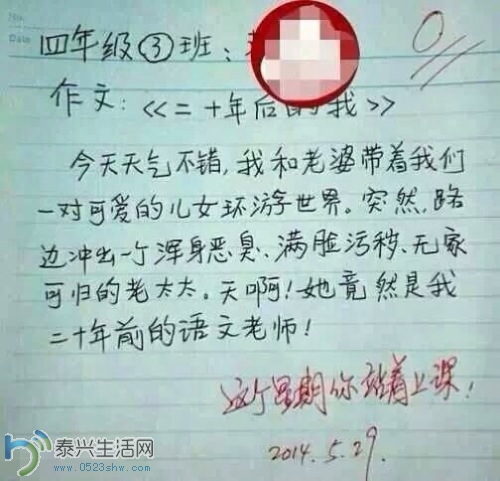 No.
Date
0
四年级③班:
作文:《二十年后的我》
今天天气不错,我和老婆带着我们
一对可爱的儿女环游世界。突然,路
边冲出一个浑身恶臭、满脸污秽、无家
可归的老太太。天啊!她竟然是我
二十年前的语文老师!
这个星期你站着上课!
2014.5.29.
泰兴生活网
www.0523shw.com